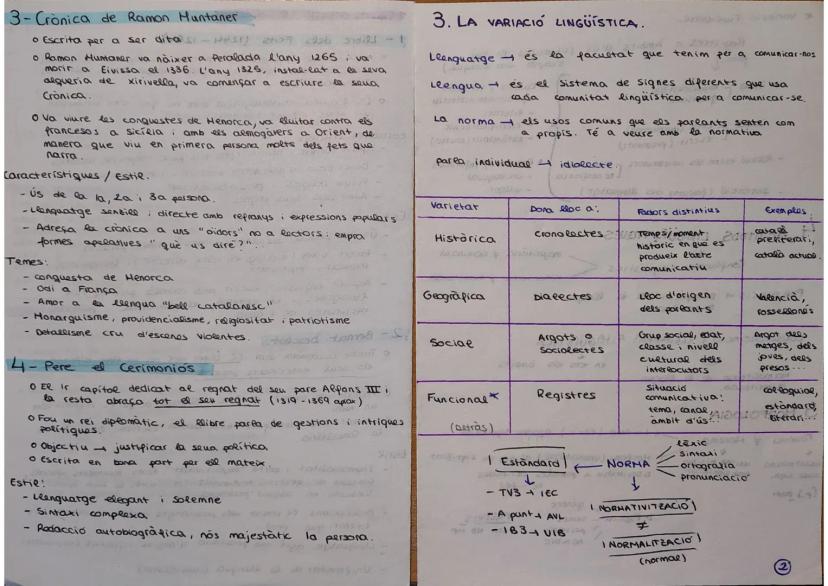 3- Crònica de Ramon Muntaner
o Escrita per a ser dita
o Ramon Muntaner va nàixer a Peralada l'any 1265 i va
morir a Eivissa el 1336. L'any 1325, instal·lat a la seva
alqueria de Xirivella, va començar a escriure la seua
Crònica.
o Va viure les conquestes de Menorca, va lluitar contra els
francesos a Sicília i amb els almogàvers a Orient, de
manera que viu en primera persona molts dels fets que
narra.
Característiques / Estil.
- Ús de la 1a, 2a i 3a persona.
- Llenguatge senzill i directe amb refranys i expressions populars
- Adreça la crònica a uns "oïdors" no a lectors: empra
formes apel·latives "què us diré?"...
Temes:
- conquesta de Menorca
- Odi a França
- Amor a la llengua "bell catalanesc"
- Monarquisme, providencialisme, religiositat i patriotisme
- Detallisme cru d'escenes violentes.
4- Pere el Cerimoniós
o El 1r capítol dedicat al regnat del seu pare Alfons III i
la resta abraça tot el seu regnat (1319-1369 aprox)
o Fou un rei diplomàtic, el llibre parla de gestions i intrigues
polítiques.
o Objectiu → justificar la seua política
o Escrita en bona part per ell mateix
Estil:
- Llenguatge elegant i solemne
- Sintaxi complexa
- Redacció autobiogràfica, nós majestàtic 1a persona.
3. LA VARIACIÓ LINGÜÍSTICA.
Llenguatge → és la facultat que tenim per a comunicar-nos
Llengua → és el sistema de signes diferents que usa
cada comunitat lingüística per a comunicar-se.
La norma → els usos comuns que els parlants senten com
a propis. Té a veure amb la normativa
parla individual → idiolecte
Varietat Dona lloc a: Factors distintius Exemples
Històrica Cronolectes Temps/moment històric en què es produeix l'acte comunicatiu català preliterari, català actual.
Geogràfica Dialectes Lloc d'origen dels parlants Valencià, rossellonés
Social Argots o Sociolectes Grup social, edat, classe i nivell cultural dels interlocutors Argot dels metges, dels joves, dels presos...
Funcional* (Detràs) Registres Situació comunicativa: tema, canal, àmbit d'ús... col·loquial, estàndard, literari...
Estàndard ← NORMA
lèxic
sintaxi
ortografia
pronunciació
- TV3 → IEC
- A punt → AVL
- IB3 → UIB
NORMATIVITZACIÓ
≠
NORMALITZACIÓ
(normal)
2